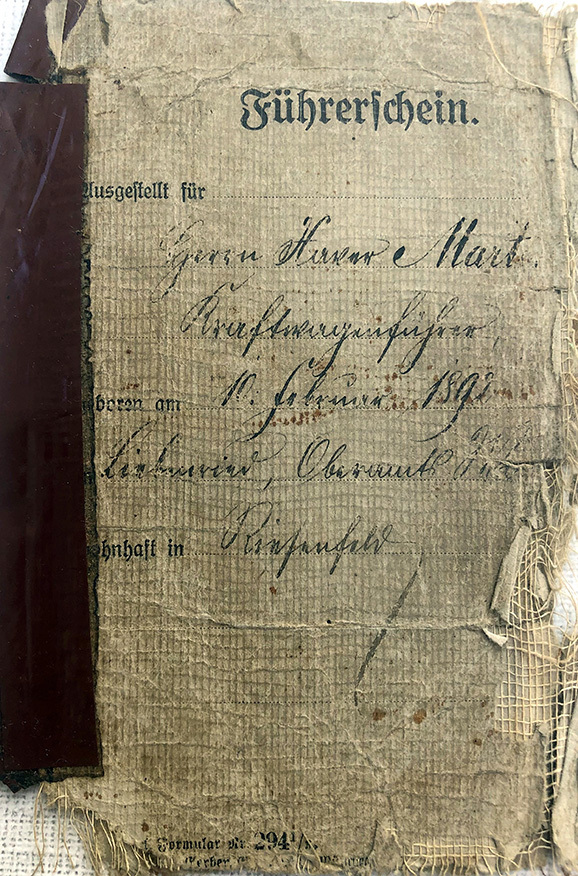 Führerschein.
Ausgestellt für
Herrn Xaver Mart
Kraftwagenführer,
boren am 10. Februar 189
Oberamts
ohnhaft in Riesenfeld
Formular Nr. 294